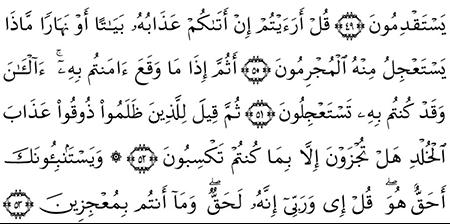 يَسْتَقْدِمُونَ ﴿٤٩﴾ قُلْ أَرَءَيْتُمْ إِنْ أَتَىٰكُمْ عَذَابُهُۥ بَيَـٰتًا أَوْ نَهَارًا مَّاذَا
يَسْتَعْجِلُ مِنْهُ ٱلْمُجْرِمُونَ ﴿٥٠﴾ أَثُمَّ إِذَا مَا وَقَعَ ءَامَنتُم بِهِۦٓ ۚ ءَآلْـَٔـٰنَ
وَقَدْ كُنتُم بِهِۦ تَسْتَعْجِلُونَ ﴿٥١﴾ ثُمَّ قِيلَ لِلَّذِينَ ظَلَمُوا۟ ذُوقُوا۟ عَذَابَ
ٱلْخُلْدِ هَلْ تُجْزَوْنَ إِلَّا بِمَا كُنتُمْ تَكْسِبُونَ ﴿٥٢﴾ ۞ وَيَسْتَنۢبِـُٔونَكَ
أَحَقٌّ هُوَ ۖ قُلْ إِى وَرَبِّىٓ إِنَّهُۥ لَحَقٌّ ۖ وَمَآ أَنتُم بِمُعْجِزِينَ ﴿٥٣﴾